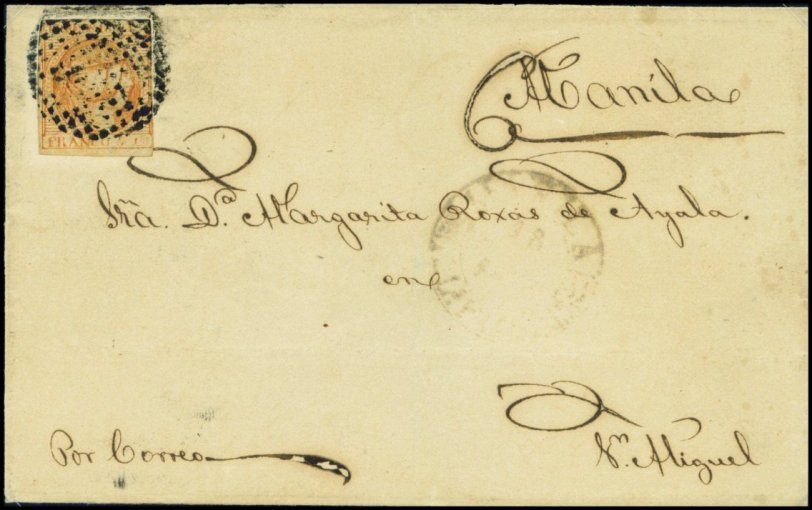 FRANCO
Manila
Sra. Da. Margarita Roxas de Ayala.
en
Por Correo
Sn. Miguel